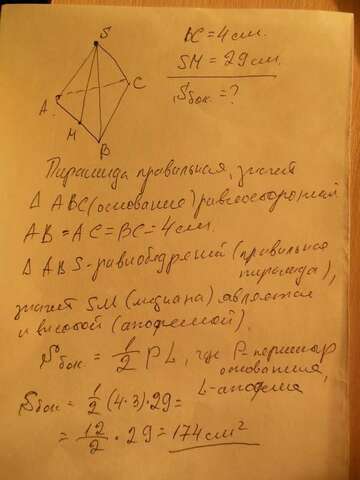 S
A
C
M
B
AC = 4 см.
SM = 29 см.
Sбок = ?
Пирамида правильная, значит
Δ ABC (основание) равносторонний
AB = AC = BC = 4 см.
Δ ABS - равнобедренный (правильная
пирамида),
значит SM (медиана) является
и высотой (апофемой).
Sбок = 1/2 PL, где P-периметр
основания,
L-апофема,
Sбок = 1/2 (4·3)·29 =
= 12/2 · 29 = 174 см²